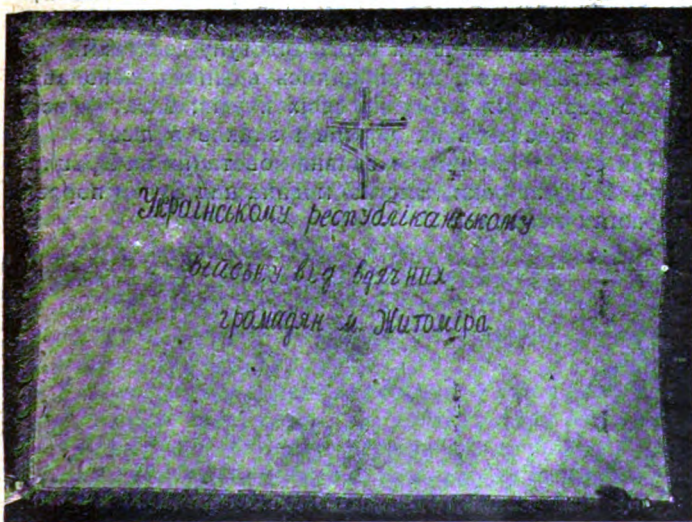 Українському республіканському
війську від вдячних
громадян м. Житоміра